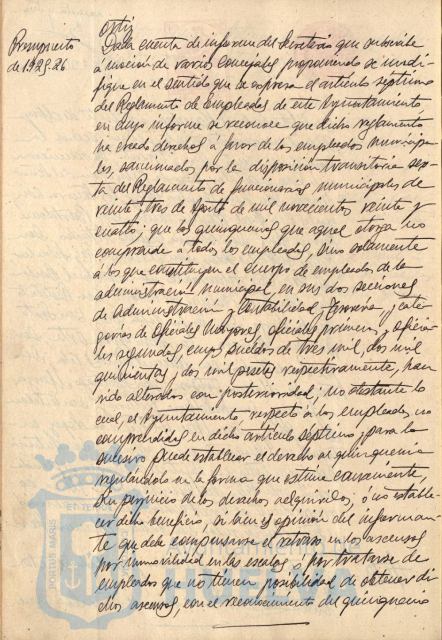 Ortiz
Presupuesto
de 1925-26
Dada cuenta de informe del Secretario que se remite
a moción de varios concejales proponiendo se modi-
fique en el sentido que se expresa el artículo septimo
del Reglamento de empleados de este Ayuntamiento
en cuyo informe se reconoce que dicho reglamento
ha creado derechos a favor de los empleados municipa-
les, sancionados por la disposición transitoria sep-
ta del Reglamento de funcionarios municipales de
veinte y tres de Agosto de mil novecientos veinte y
cuatro; que los quinquenios que aquel otorga no
comprende a todos los empleados, sino solamente
á los que constituyen el cuerpo de empleados de la
administración municipal, en sus dos secciones
de Administración y Contabilidad y Tesorería, y cate-
gorías de oficiales mayores, oficiales primeros, y oficia-
les segundos, cuyos sueldos de tres mil, dos mil
quinientas y dos mil pesetas respectivamente, han
sido alterados con posterioridad; no obstante lo
cual, el Ayuntamiento respecto á los empleados no
comprendidos en dicho artículo séptimo y para lo
sucesivo puede establecer el derecho al quinquenio
regulándolo en la forma que estime conveniente,
sin perjuicio de los derechos adquiridos, ó no estable-
cer dicho beneficio, si bien es opinión del informan-
te que debe compensarse el retraso en los ascensos
por inmovilidad en las escalas, ó por tratarse de
empleados que no tienen posibilidad de obtener di-
chos ascensos, con el reconocimiento del quinquenio
PORTUS MARIS